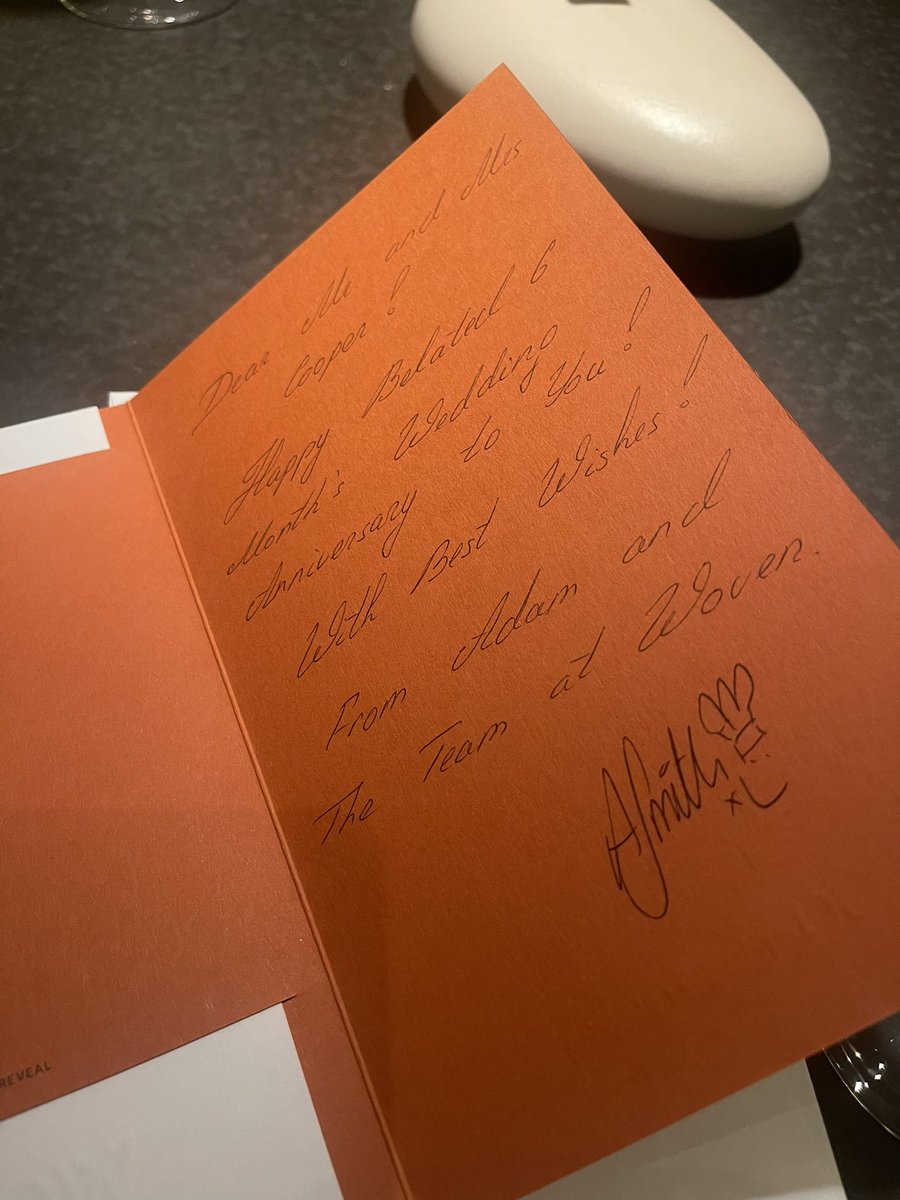 Dear Mr and Mrs
Cooper!
Happy Belated 6
Month's Wedding
Anniversary to You!
With Best Wishes!
From Adam and
The Team at Woven.
ASmith
x
REVEAL